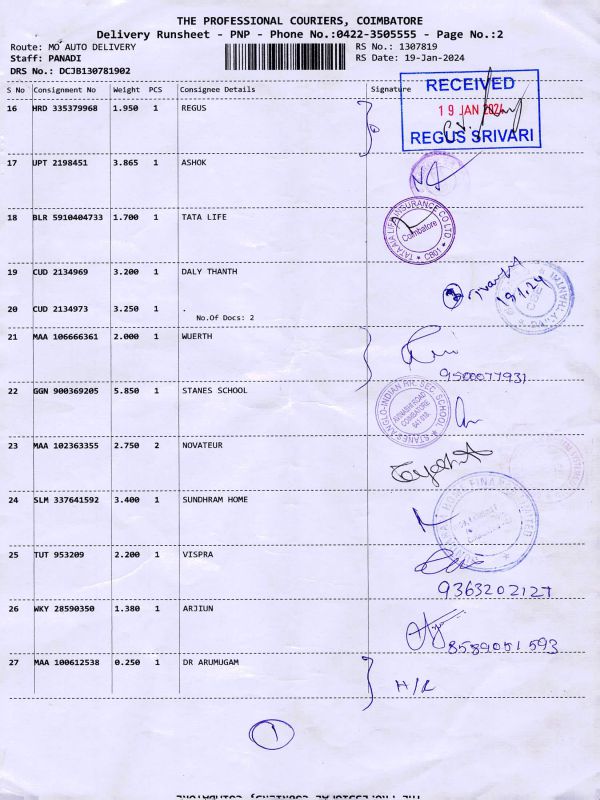 THE PROFESSIONAL COURIERS, COIMBATORE
Delivery Runsheet - PNP - Phone No.:0422-3505555 - Page No.:2
Route: MO AUTO DELIVERY
RS No.: 1307819
Staff: PANADI
RS Date: 19-Jan-2024
DRS No.: DCJB130781902
S No Consignment No Weight PCS Consignee Details Signature
RECEIVED
19 JAN 2024
REGUS SRIVARI
16 HRD 335379968 1.950 1 REGUS
17 UPT 2198451 3.865 1 ASHOK
18 BLR 5910404733 1.700 1 TATA LIFE
TATA AIA LIFE INSURANCE CO LTD
Coimbatore
* CB01 *
19 CUD 2134969 3.200 1 DALY THANTH
19.1.24
20 CUD 2134973 3.250 1 .
No.Of Docs: 2
21 MAA 106666361 2.000 1 WUERTH
9500077931
22 GGN 900369205 5.850 1 STANES SCHOOL
STANES ANGLO-INDIAN HR. SEC. SCHOOL
AVINASHI ROAD
COIMBATORE
641 018.
23 MAA 102363355 2.750 2 NOVATEUR
24 SLM 337641592 3.400 1 SUNDHRAM HOME
25 TUT 953209 2.200 1 VISPRA
9363202127
26 WKY 28590350 1.380 1 ARJIUN
8589051593
27 MAA 100612538 0.250 1 DR ARUMUGAM
H/R
1